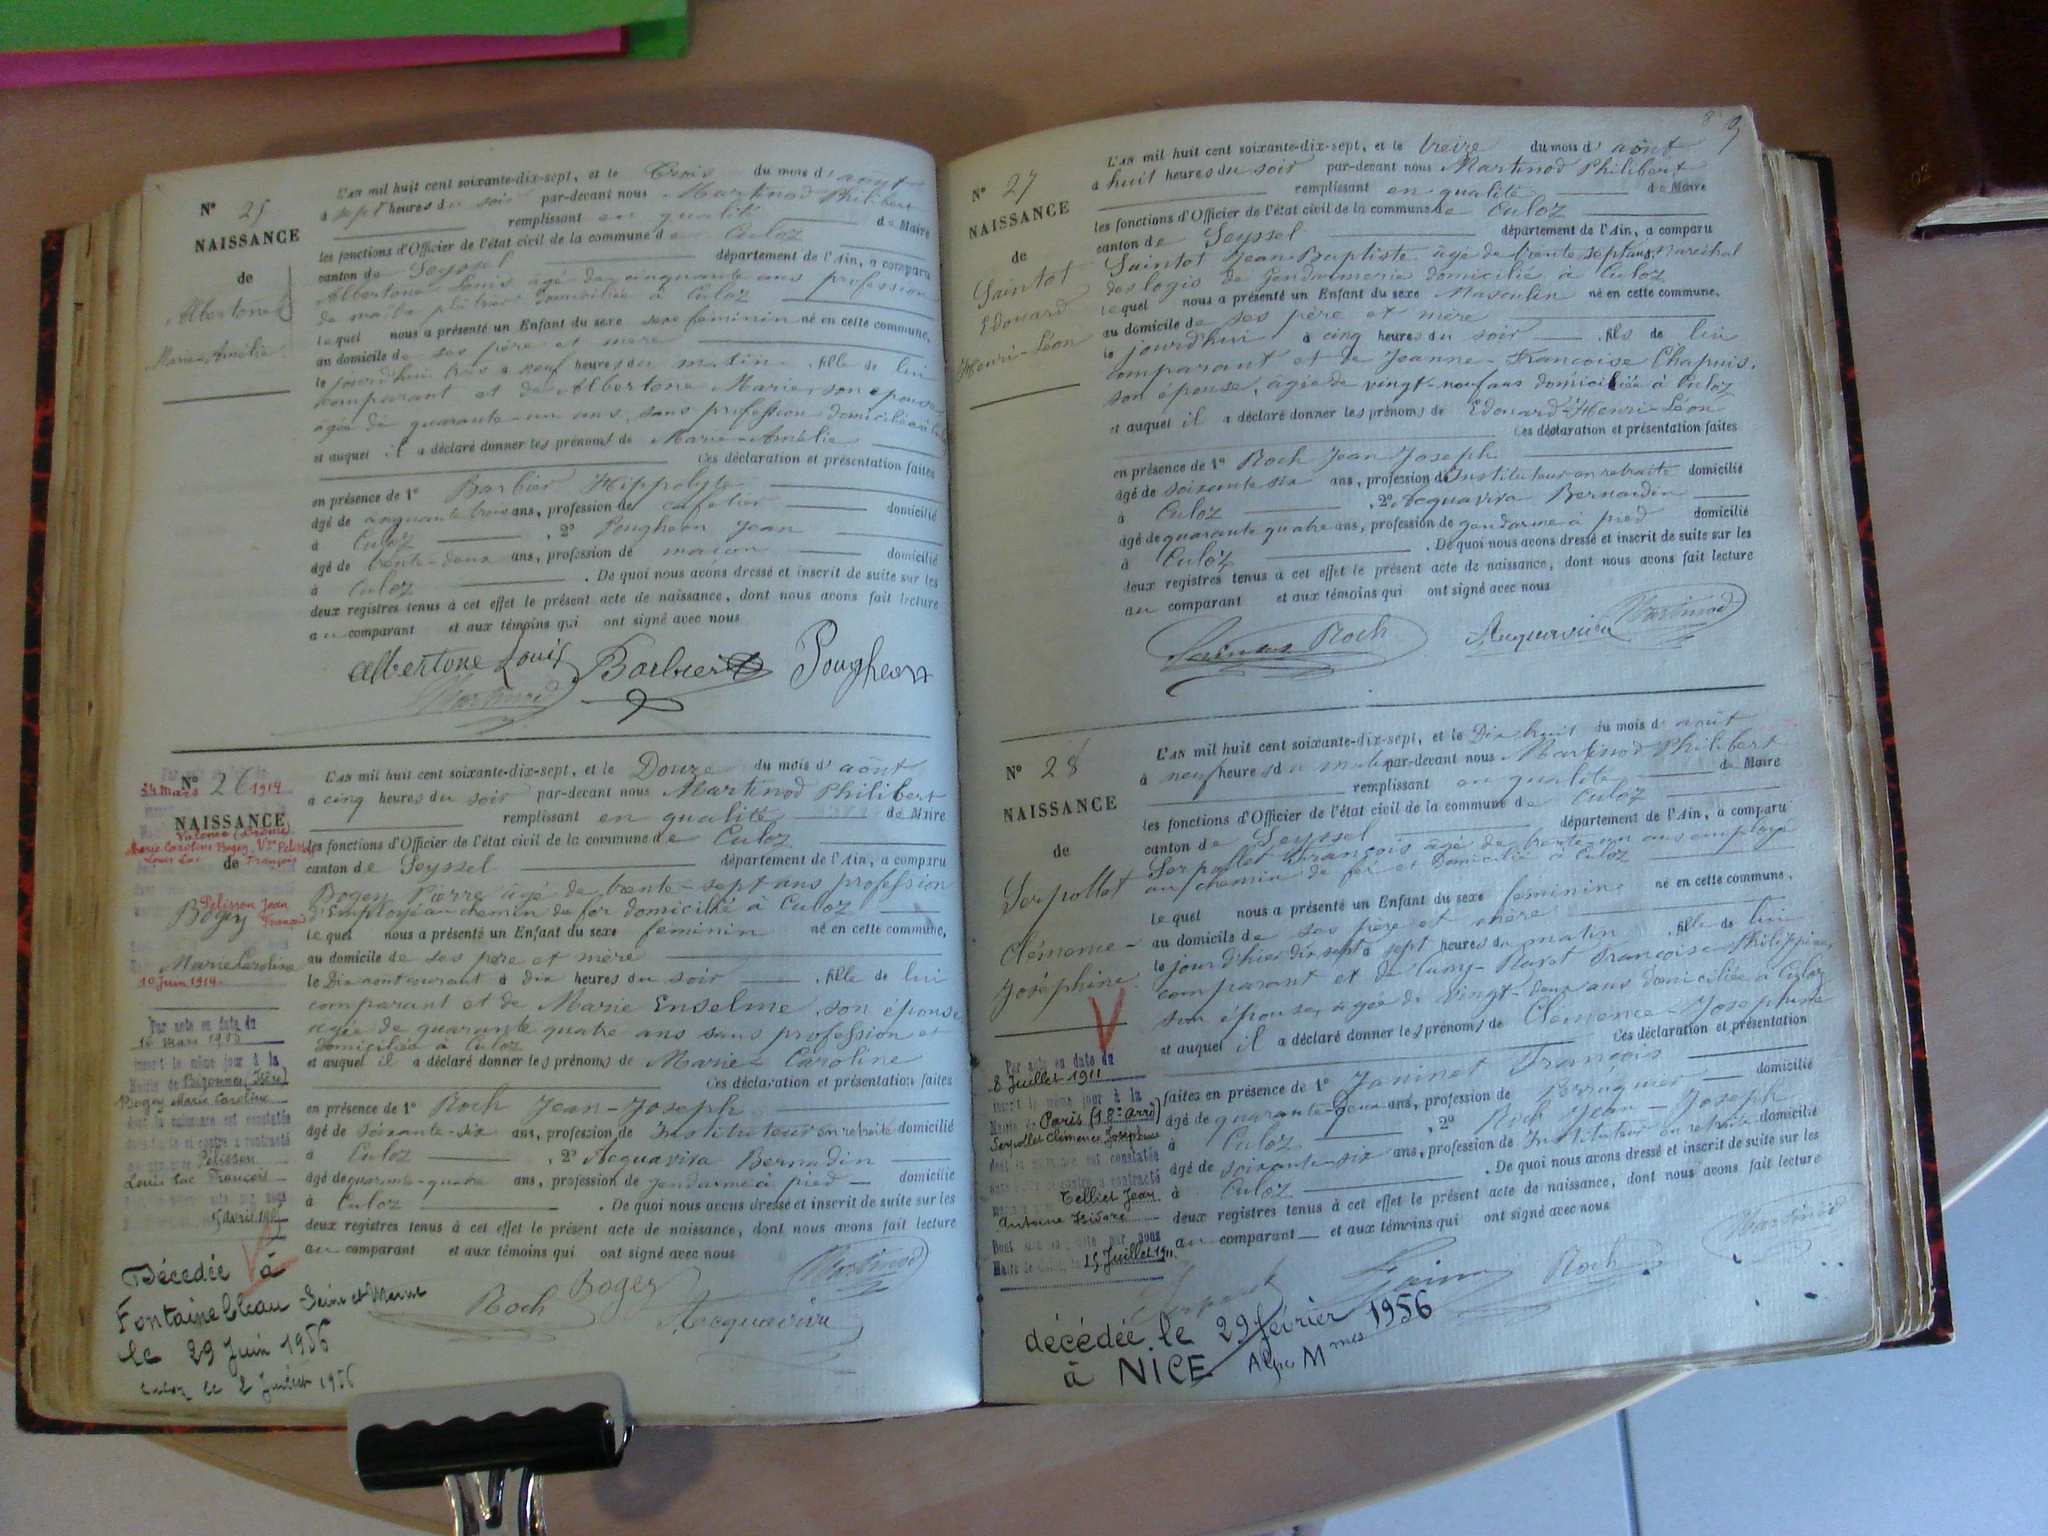 N° 25
NAISSANCE
de
Albertone
Marie-Amélie
L'AN mil huit cent soixante-dix-sept, et le Trois du mois d'août
à sept heures du soir par-devant nous Martinod Philibert
remplissant en qualité de Maire
les fonctions d'Officier de l'état civil de la commune de Culoz
canton de Seyssel département de l'Ain, a comparu
Albertone Louis âgé de cinquante ans profession
de maître plâtrier domiciliée à Culoz
lequel nous a présenté un Enfant du sexe sexe feminin né en cette commune,
au domicile de ses père et mère
le jourd'hui trois à neuf heures du matin fille de lui
comparant et de Albertone Marie, son épouse
agée de quarante-un ans, sans profession domiciliée à Culoz
et auquel il a déclaré donner les prénoms de Marie-Amélie
Ces déclaration et présentation faites
en présence de 1° Barbier Hippolyte
âgé de cinquante trois ans, profession de cafetier domicilié
à Culoz , 2° Pougheon Jean
âgé de trente-deux ans, profession de maçon domicilié
à Culoz . De quoi nous avons dressé et inscrit de suite sur les
deux registres tenus à cet effet le présent acte de naissance, dont nous avons fait lecture
au comparant et aux témoins qui ont signé avec nous
Albertone Louis Barbier Pougheon
Martinod
N° 26
24 mars 1914
NAISSANCE
Valence (Drôme)
Marie Caroline Bogey, Vve Pelisson
Louis Luc François
de
Pelisson Jean
François
Bogey
Marie Caroline
10 Juin 1914
Par acte en date du
16 mars 1905
inscrit le même jour à la
Mairie de Bizonnes (Isère)
Bogey Marie Caroline
dont la naissance est constatée
dans l'acte ci-contre a contracté
mariage avec Pelisson
Louis Luc François
Décédée à
Fontainebleau Seine et Marne
le 29 Juin 1956
Culoz le 2 Juillet 1956
L'AN mil huit cent soixante-dix-sept, et le Douze du mois d'août
à cinq heures du soir par-devant nous Martinod Philibert
remplissant en qualité de Maire
les fonctions d'Officier de l'état civil de la commune de Culoz
canton de Seyssel département de l'Ain, a comparu
Bogey Pierre âgé de trente-sept ans profession
d'Employé au chemin de fer domicilié à Culoz
lequel nous a présenté un Enfant du sexe feminin né en cette commune,
au domicile de ses père et mère
le Dix août courant à dix heures du soir fille de lui
comparant et de Marie Enselme, son épouse
agée de quarante quatre ans sans profession et
domiciliée à Culoz
et auquel il a déclaré donner les prénoms de Marie-Caroline
Ces déclaration et présentation faites
en présence de 1° Roch Jean-Joseph
âgé de soixante-six ans, profession de Instituteur en retraite domicilié
à Culoz , 2° Acquaviva Bernadin
âgé de quarante-quatre ans, profession de gendarme à pied domicilié
à Culoz . De quoi nous avons dressé et inscrit de suite sur les
deux registres tenus à cet effet le présent acte de naissance, dont nous avons fait lecture
au comparant et aux témoins qui ont signé avec nous
Roch Bogey Acquaviva Martinod
9
N° 27
NAISSANCE
de
Saintot
Edouard
Henri-Léon
L'AN mil huit cent soixante-dix-sept, et le treize du mois d'août
à huit heures du soir par-devant nous Martinod Philibert
remplissant en qualité de Maire
les fonctions d'Officier de l'état civil de la commune de Culoz
canton de Seyssel département de l'Ain, a comparu
Saintot Jean-Baptiste âgé de trente sept ans, Maréchal
des logis de Gendarmerie domicilié à Culoz
lequel nous a présenté un Enfant du sexe Masculin né en cette commune,
au domicile de ses père et mère
le jourd'hui à cinq heures du soir fils de lui
comparant et de Jeanne-Françoise Chapuis,
son épouse, âgée de vingt-neuf ans domiciliée à Culoz
et auquel il a déclaré donner les prénoms de Edouard-Henri-Léon
Ces déclaration et présentation faites
en présence de 1° Roch Jean Joseph
âgé de soixante six ans, profession de Instituteur en retraite domicilié
à Culoz , 2° Acquaviva Bernardin
âgé de quarante quatre ans, profession de gendarme à pied domicilié
à Culoz . De quoi nous avons dressé et inscrit de suite sur les
deux registres tenus à cet effet le présent acte de naissance, dont nous avons fait lecture
au comparant et aux témoins qui ont signé avec nous
Roch Acquaviva Martinod
N° 28
NAISSANCE
de
Serpollet
Clémence-
Joséphine
Par acte en date du
8 Juillet 1911
inscrit le même jour à la
Mairie de Paris (18e arrt)
Serpollet Clémence Joséphine
dont la naissance est constatée
dans l'acte ci-contre a contracté
Tellier Jean
Antoine Isidore
Dont mention faite par nous
15 Juillet 1911
L'AN mil huit cent soixante-dix-sept, et le Dix huit du mois d'août
à neuf heures du matin par-devant nous Martinod Philibert
remplissant en qualité de Maire
les fonctions d'Officier de l'état civil de la commune de Culoz
canton de Seyssel département de l'Ain, a comparu
Serpollet François âgé de trente-un ans employé
au chemin de fer et Domicilié à Culoz
lequel nous a présenté un Enfant du sexe feminin né en cette commune,
au domicile de ses père et mère
le jourd'hier dix sept à sept heures du matin fille de lui
comparant et de Françoise Philippine,
son épouse, agée de vingt-deux ans domiciliée à Culoz
et auquel il a déclaré donner les prénoms de Clémence-Joséphine
Ces déclaration et présentation
faites en présence de 1° Janinet François domicilié
âgé de quarante-deux ans, profession de Perruquier
à Culoz , 2° Roch Jean-Joseph
âgé de soixante-six ans, profession de Instituteur en retraite domicilié
à Culoz . De quoi nous avons dressé et inscrit de suite sur les
deux registres tenus à cet effet le présent acte de naissance, dont nous avons fait lecture
au comparant et aux témoins qui ont signé avec nous
Roch Martinod
décédée le 29 février 1956
à NICE Alpes Mmes